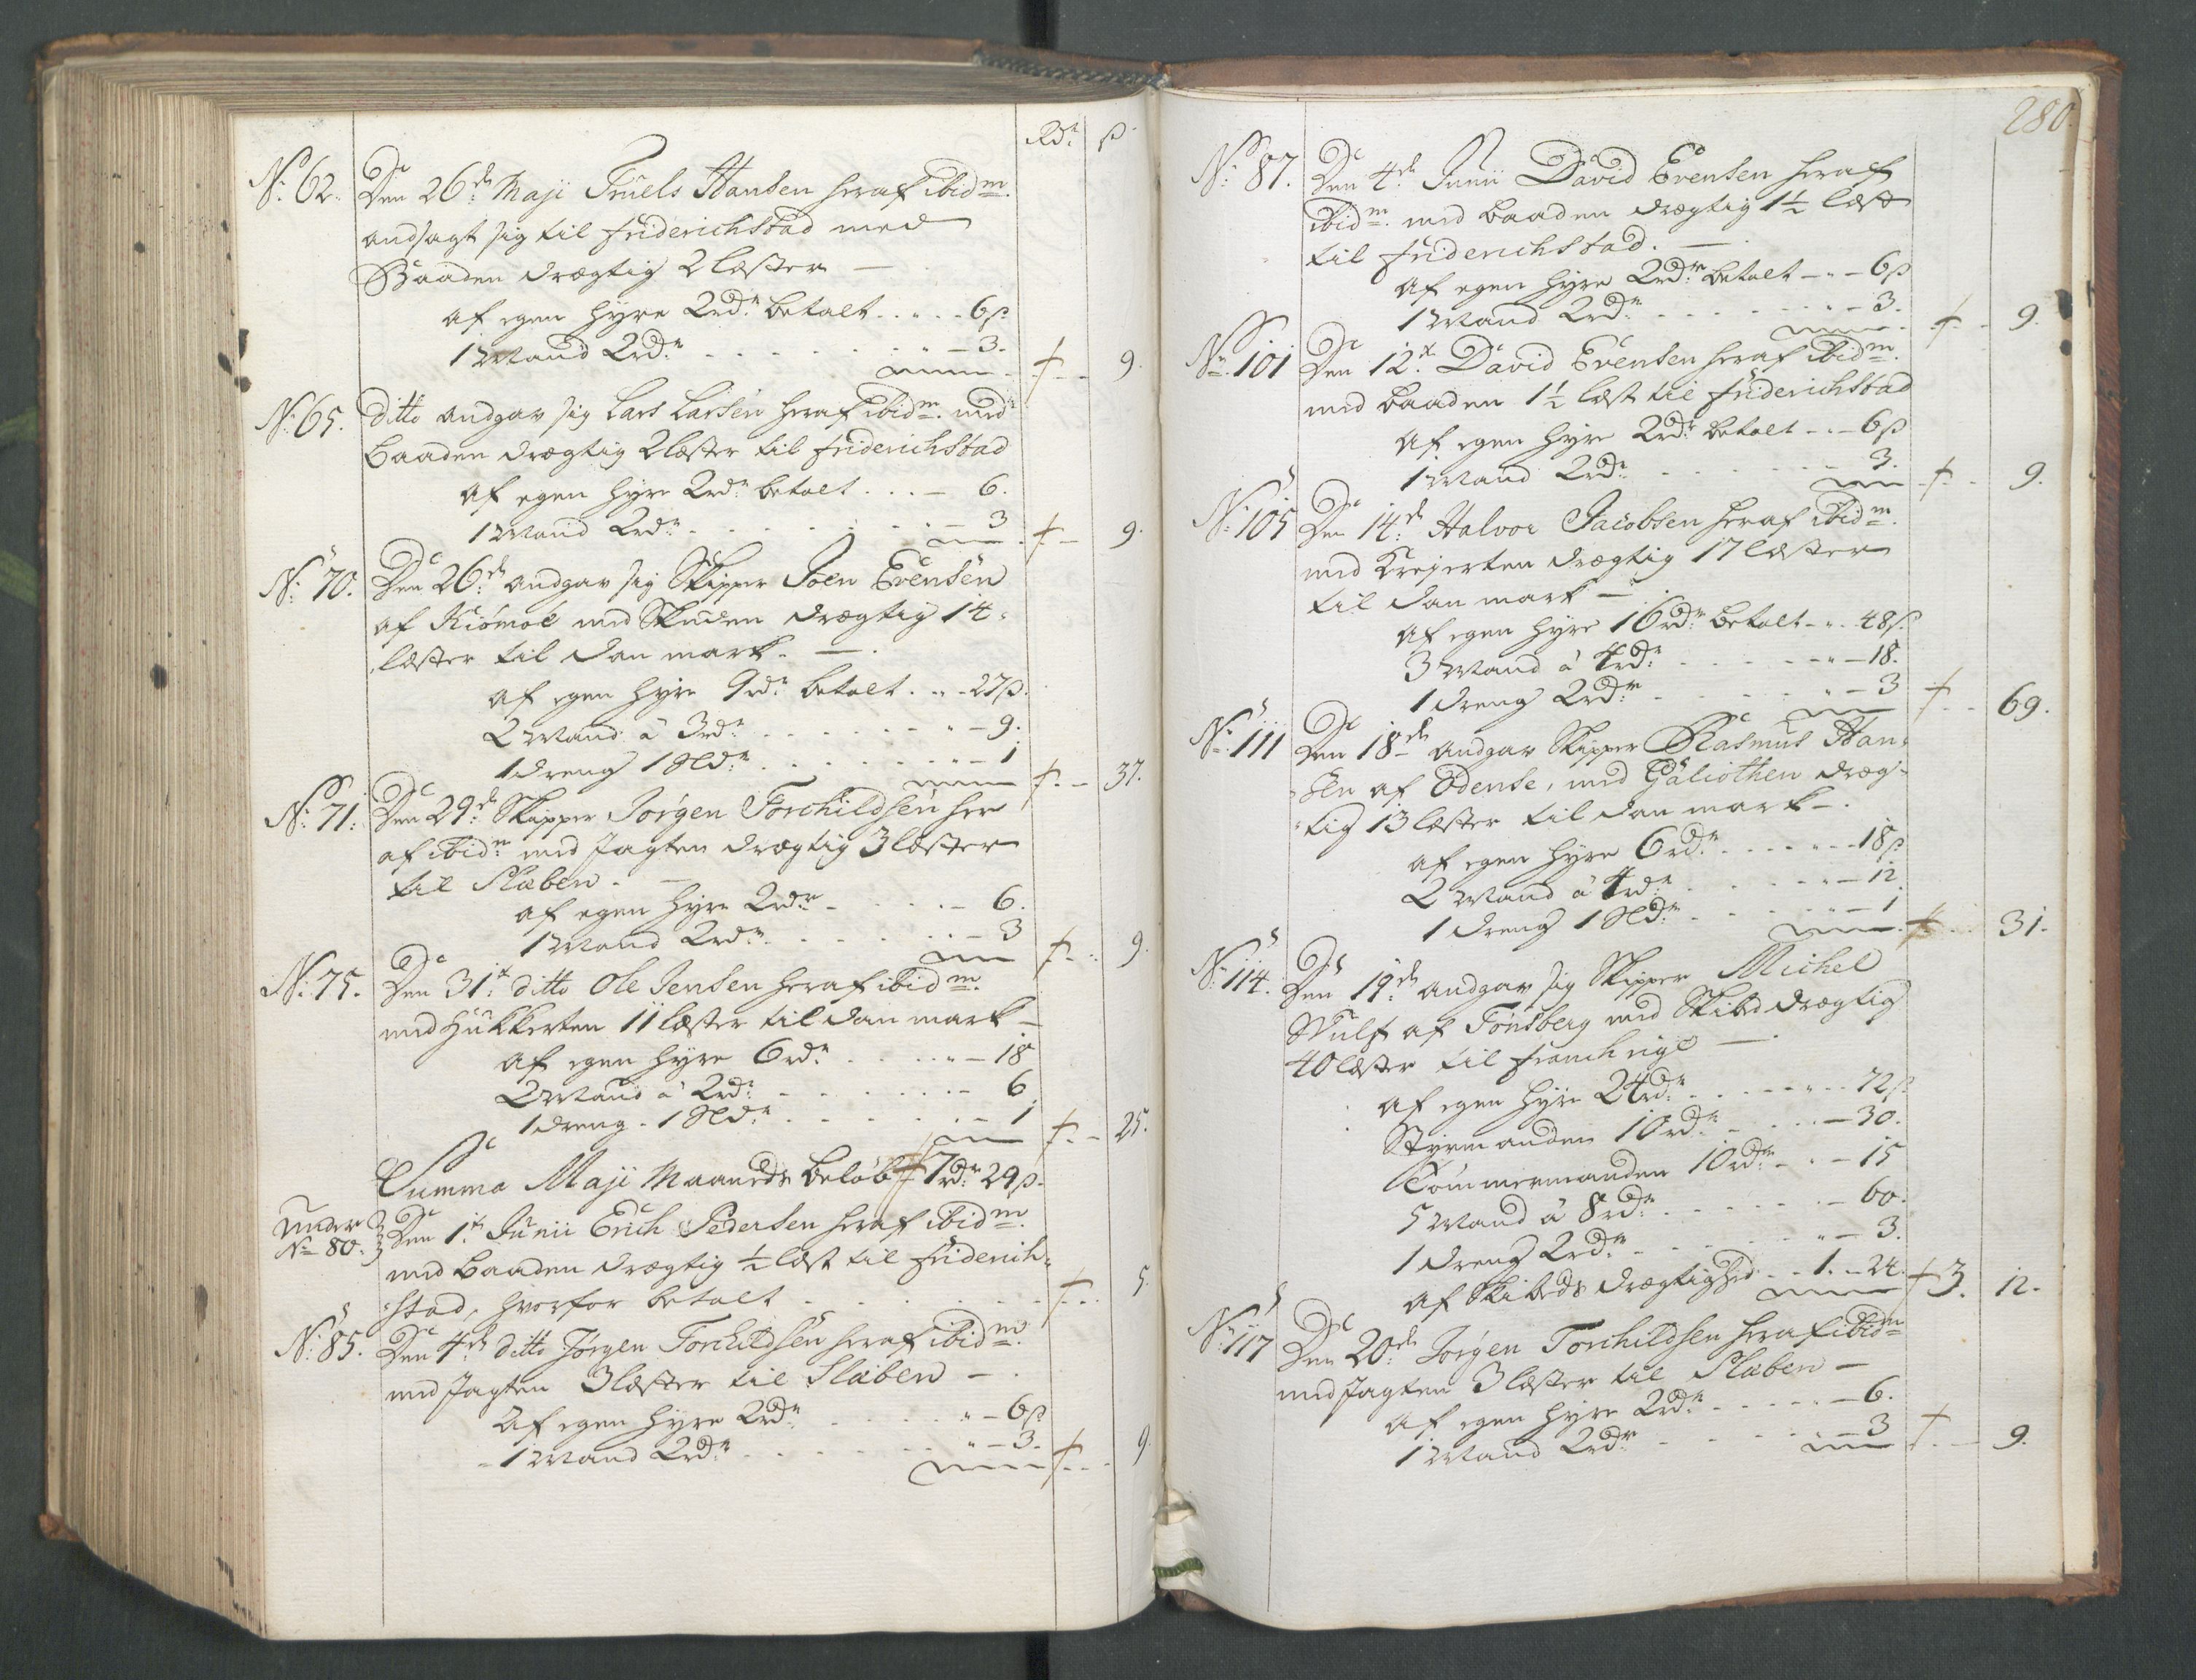 Rdr ß
No 62. Den 26de Maji Truels Hansen heraf ibidm
andsagt sig til Friderichstad med
Baaden drægtig 2 læster —
af egen hyre 2rdr betalt . . . . 6ß
1 Mand 2rdr . . . . . 3. — 9.
No 65. Ditto andgav sig Lars Larsen heraf ibidm med
Baaden drægtig 2 læster til Friderichstad
af egen hyre 2rdr betalt . . . 6.
1 Mand 2rdr . . . . . 3 — 9.
No 70. Den 26de andgav sig Skipper Joen Evensen
af Kiømøe med Skuden drægtig 14
læster til Danmark. —
af egen hyre 9rdr betalt . . . 27ß.
2 Mand à 3rdr . . . . . 9.
1 Dreng 1 Sldr . . . . . 1 — 37.
No 71. Den 29de Skipper Jørgen Torchildsen her
af ibidm med Jagten drægtig 3 læster
til Slæben. —
af egen hyre 2rdr . . . . 6.
1 Mand 2rdr . . . . . 3 — 9.
No 75. Den 31te ditto Ole Jensen heraf ibidm
med Hukkerten 11 læster til Danmark —
af egen hyre 6rdr . . . . 18
2 Mand à 2rdr . . . . . 6
1 Dreng - 1 Sldr . . . . . 1 — 25.
Summa Maji Maaneds beløb 7rdr 29ß.
Under No 80. Den 1te Junii Erich Pedersen heraf ibidm
med Baaden drægtig ½ læst til Friderich-
stad, hvorfor betalt . . . . . 5.
No 85. Den 4de ditto Jørgen Torchildsen heraf ibidm
med Jagten 3 læster til Slæben —
af egen hyre 2rdr . . . . 6ß
1 Mand 2rdr . . . . . 3. — 9
280.
No 87. Den 4de Junii David Evensen heraf
ibidm med Baaden drægtig 1½ læst
til Friderichstad. —
af egen hyre 2rdr betalt — 6ß
1 Mand 2rdr . . . . . 3. — 9.
No 101 Den 12te David Evensen heraf ibidm
med Baaden 1½ læst til Friderichstad
af egen hyre 2rdr betalt — 6ß
1 Mand 2rdr . . . . . 3. — 9.
No 105 Den 14de Halvor Jacobsen heraf ibidm
med Krejerten drægtig 17 læster
til Danmark —
af egen hyre 16rdr betalt — 48ß.
3 Mand à 4rdr . . . . . 18.
1 Dreng 2rdr . . . . . 3 — 69.
No 111 Den 18de andgav Skipper Rasmus Han-
sen af Odense, med Galiothen dræg-
tig 13 læster til Danmark —.
af egen hyre 6rdr . . . . 18ß
2 Mand à 4rdr . . . . . 12
1 Dreng 1 Sldr . . . . . 1 — 31.
No 114. Den 19de andgav sig Skipper Michel
Wulf af Tønsberg med Skibed drægtig
40 læster til Franchrige —
af egen hyre 24rdr . . . . 72ß
Styrmanden 10rdr . . . . 30.
Tømmermanden 10rdr . . 15
5 Mand à 8rdr . . . . . 60.
1 Dreng 2rdr . . . . . 3.
af Skibeds drægtighed . . 1. - 24. 3. 12.
No 117 Den 20de Jørgen Torchildsen heraf ibidm
med Jagten 3 læster til Slæben —
af egen hyre 2rdr . . . . 6.
1 Mand 2rdr . . . . . 3 — 9.